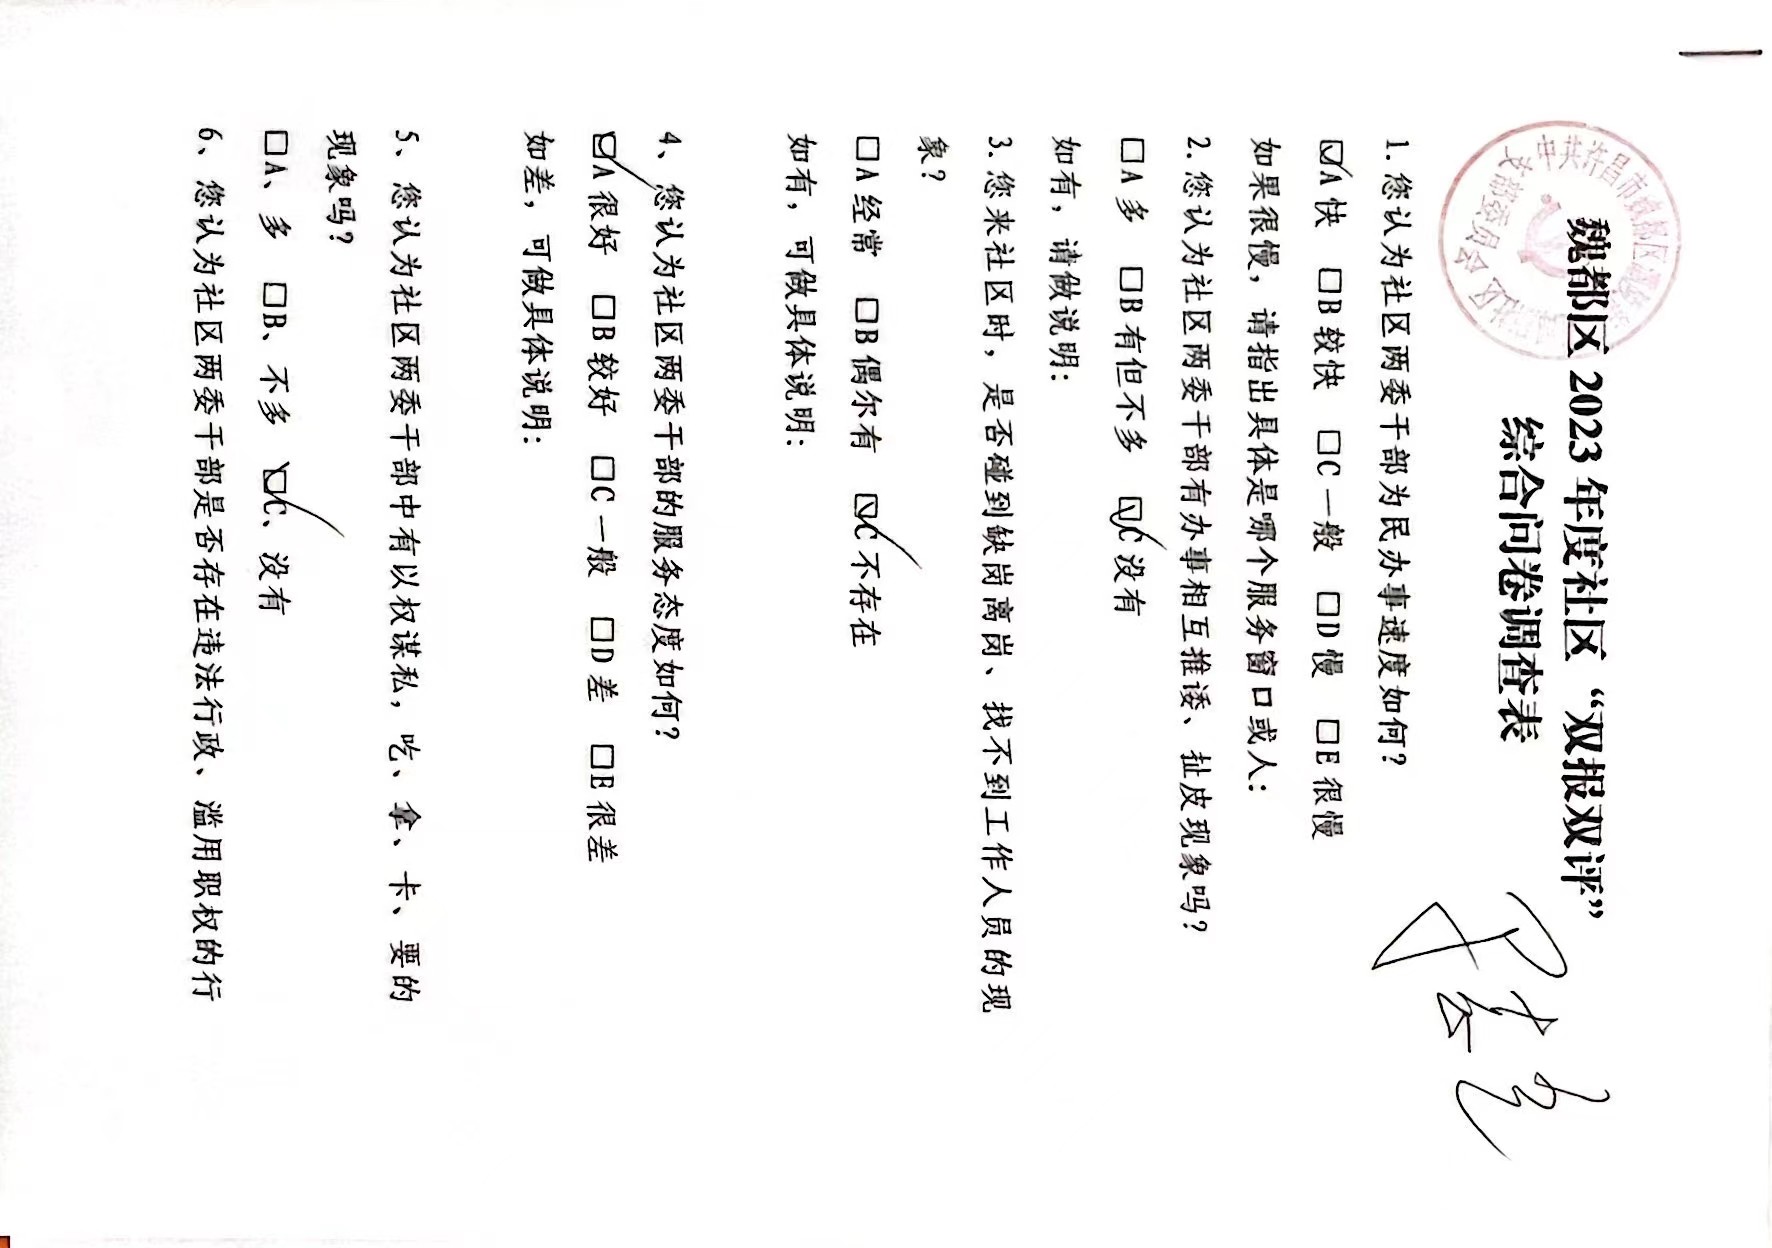 魏都区 2023 年度社区“双报双评”
综合问卷调查表
1.您认为社区两委干部为民办事速度如何？
☑A 快 □B 较快 □C 一般 □D 慢 □E 很慢
如果很慢，请指出具体是哪个服务窗口或人：
2.您认为社区两委干部有办事相互推诿、扯皮现象吗？
□A 多 □B 有但不多 ☑C 没有
如有，请做说明：
3.您来社区时，是否碰到缺岗离岗、找不到工作人员的现
象？
□A 经常 □B 偶尔有 ☑C 不存在
如有，可做具体说明：
4、您认为社区两委干部的服务态度如何？
☑A 很好 □B 较好 □C 一般 □D 差 □E 很差
如差，可做具体说明：
5、您认为社区两委干部中有以权谋私，吃、拿、卡、要的
现象吗？
□A、多 □B、不多 ☑C、没有
6、您认为社区两委干部是否存在违法行政、滥用职权的行
中共许昌市魏都区
委员会